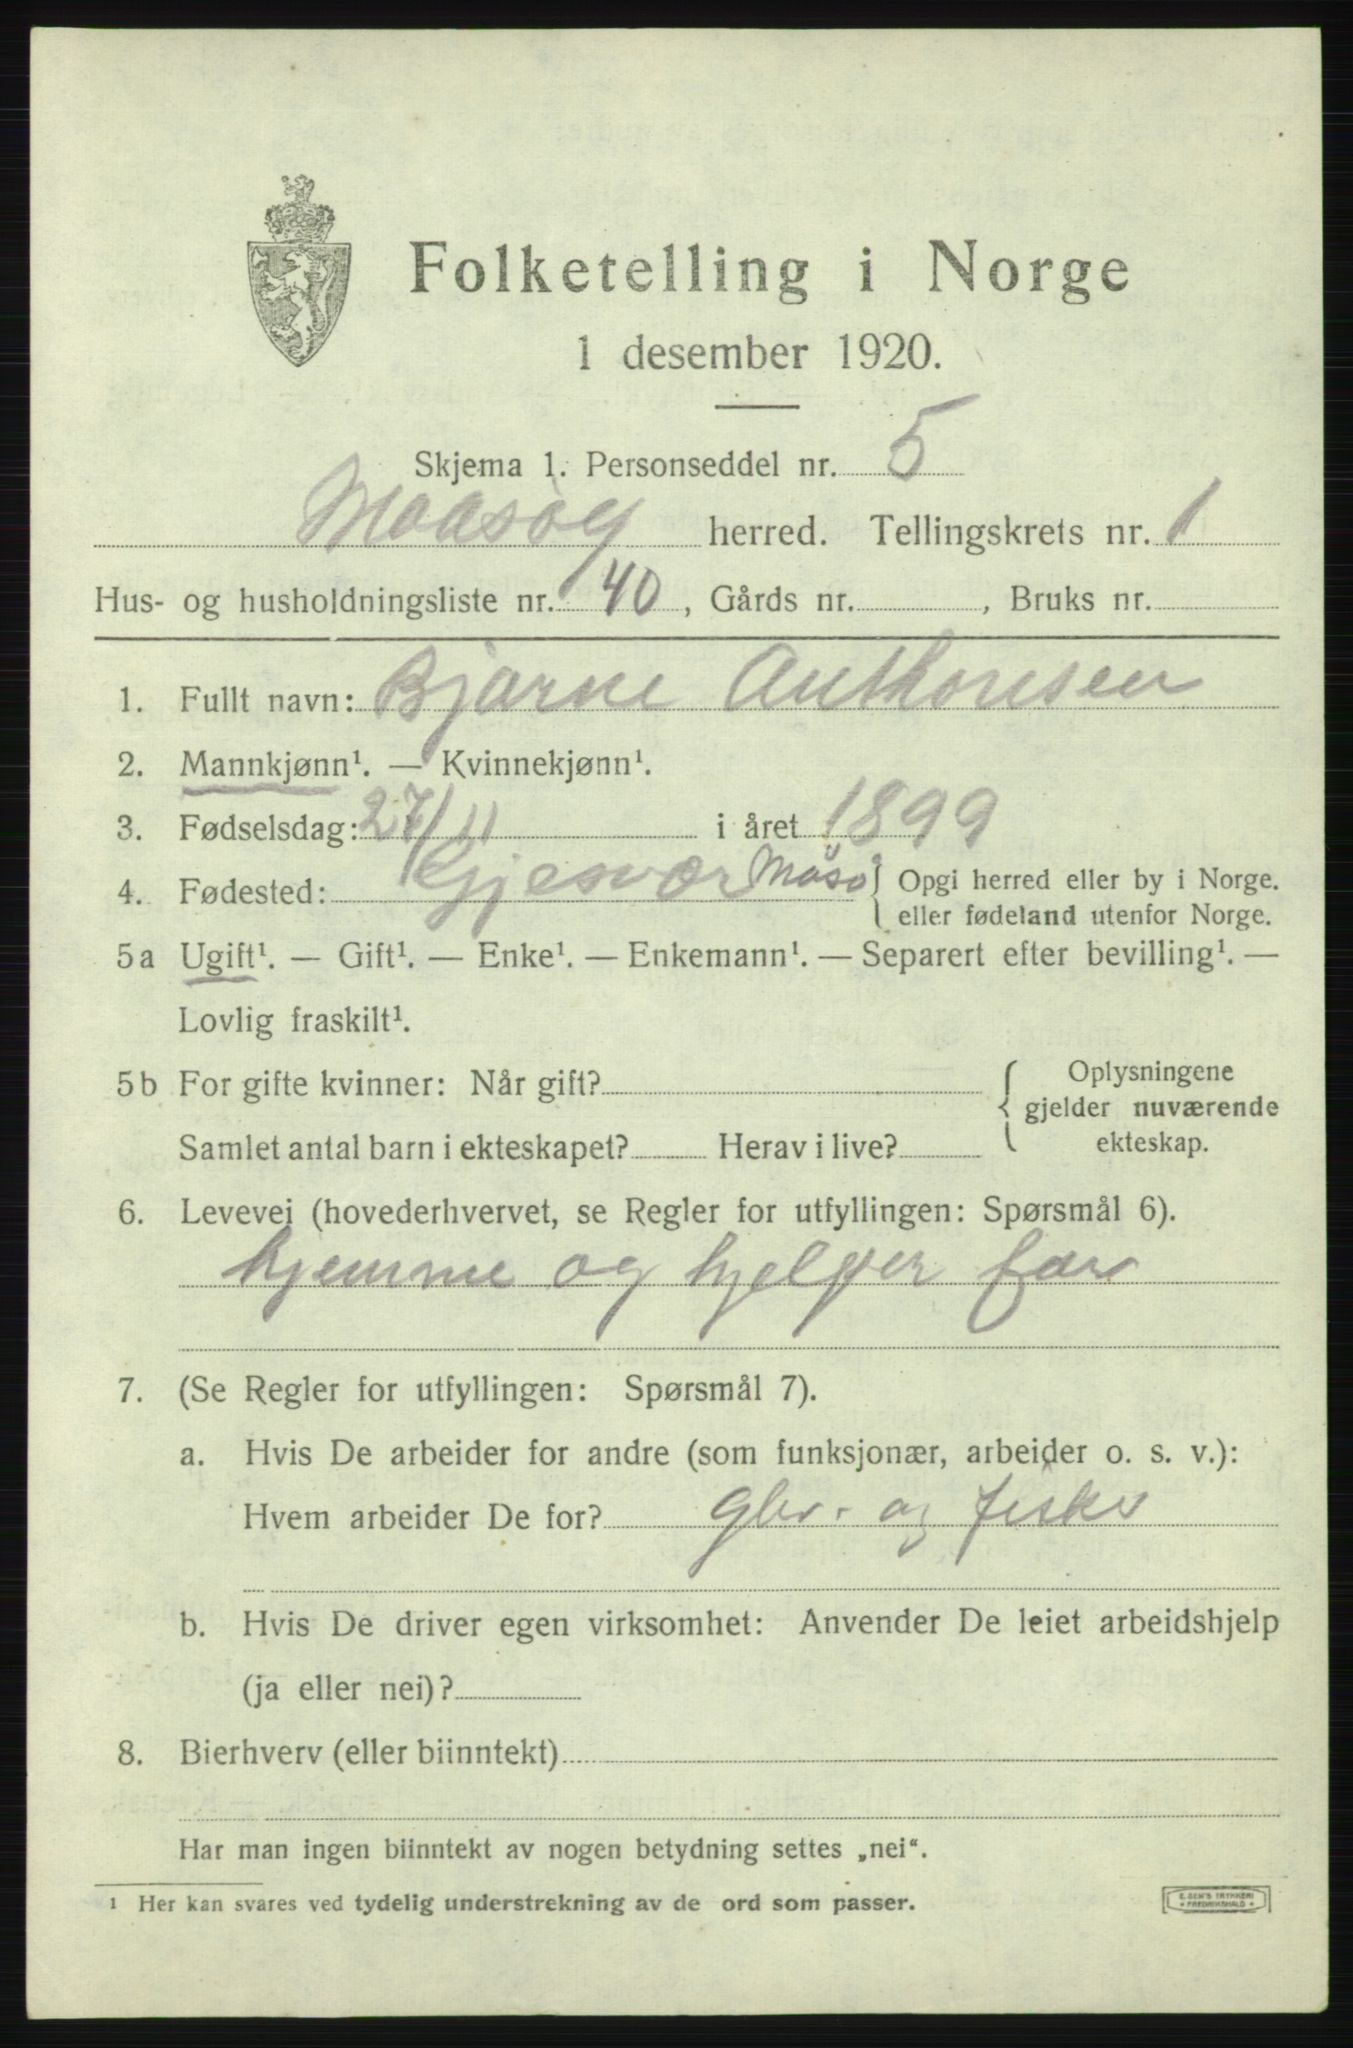 Folketelling i Norge
1 desember 1920.
Skjema 1. Personseddel nr. 5
Maasøy herred. Tellingskrets nr. 1
Hus- og husholdningsliste nr. 40, Gårds nr. , Bruks nr.
1. Fullt navn: Bjarne Anthonsen
2. Mannkjønn¹. — Kvinnekjønn¹.
3. Fødselsdag: 27/11 i året 1899
4. Fødested: Gjesvær Måsø { Opgi herred eller by i Norge.
eller fødeland utenfor Norge.
5a Ugift¹. — Gift¹. — Enke¹. — Enkemann¹. — Separert efter bevilling¹. —
Lovlig fraskilt¹.
5b For gifte kvinner: Når gift? { Oplysningene
gjelder nuværende
Samlet antal barn i ekteskapet? Herav i live? ekteskap.
6. Levevei (hovederhvervet, se Regler for utfyllingen: Spørsmål 6).
hjemme og hjelper far
7. (Se Regler for utfyllingen: Spørsmål 7).
a. Hvis De arbeider for andre (som funksjonær, arbeider o. s. v.):
Hvem arbeider De for? gbr. og fisker
b. Hvis De driver egen virksomhet: Anvender De leiet arbeidshjelp
(ja eller nei)?
8. Bierhverv (eller biinntekt)
Har man ingen biinntekt av nogen betydning settes „nei“.
¹ Her kan svares ved tydelig understrekning av de ord som passer.
E. SEM'S TRYKKERI
FREDRIKSHALD